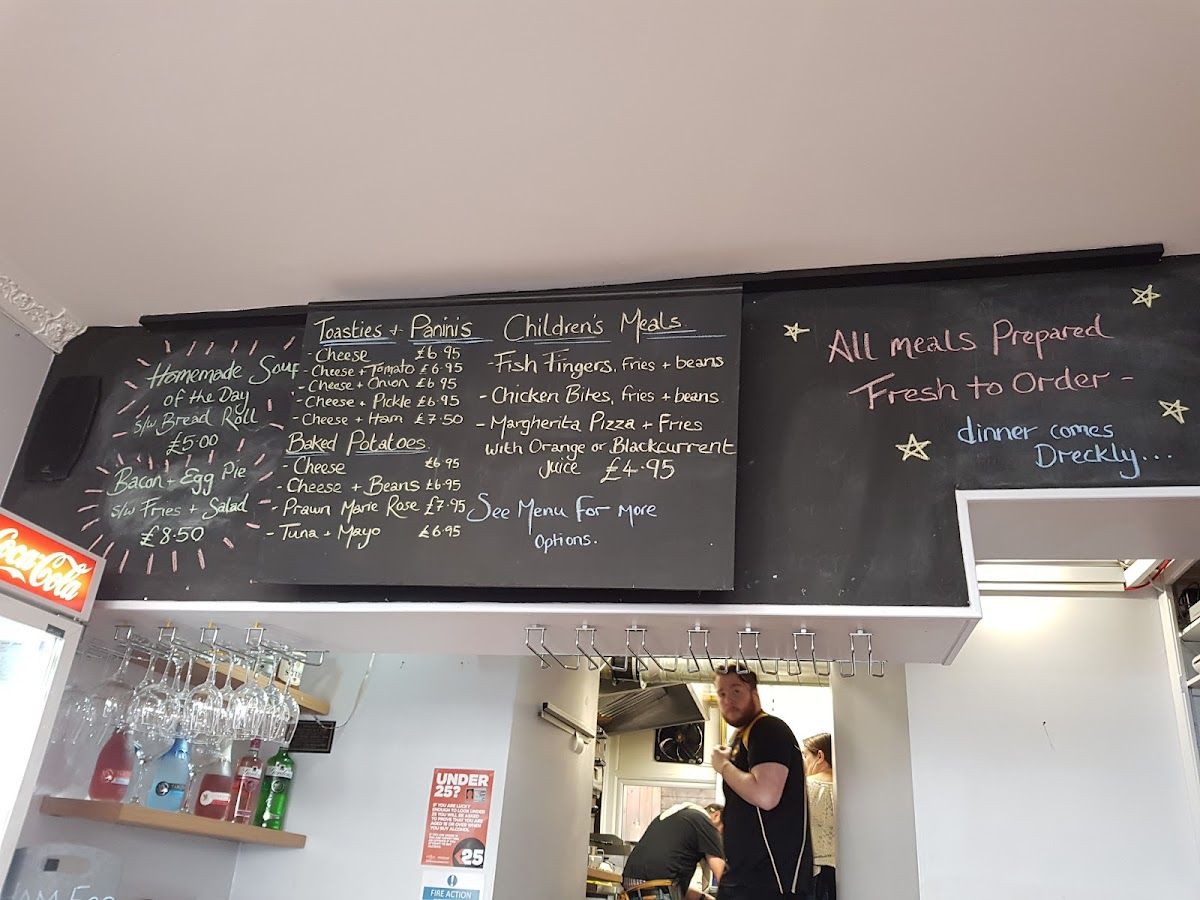 Homemade Soup
of the Day
s/w Bread Roll
£5.00
Bacon + Egg Pie
s/w Fries + Salad
£8.50
Toasties + Paninis
- Cheese £6.95
- Cheese + Tomato £6.95
- Cheese + Onion £6.95
- Cheese + Pickle £6.95
- Cheese + Ham £7.50
Baked Potatoes
- Cheese £6.95
- Cheese + Beans £6.95
- Prawn Marie Rose £7.95
- Tuna + Mayo £6.95
Children's Meals
- Fish Fingers, fries + beans
- Chicken Bites, fries + beans
- Margherita Pizza + Fries
with Orange or Blackcurrent
juice £4.95
See Menu For More
Options.
All meals Prepared
Fresh to Order -
dinner comes
Dreckly...
Coca-Cola
UNDER
25?
IF YOU ARE LUCKY
ENOUGH TO LOOK UNDER
25 YOU WILL BE ASKED
TO PROVE THAT YOU ARE
AGED 18 OR OVER WHEN
YOU BUY ALCOHOL
<25
FIRE ACTION